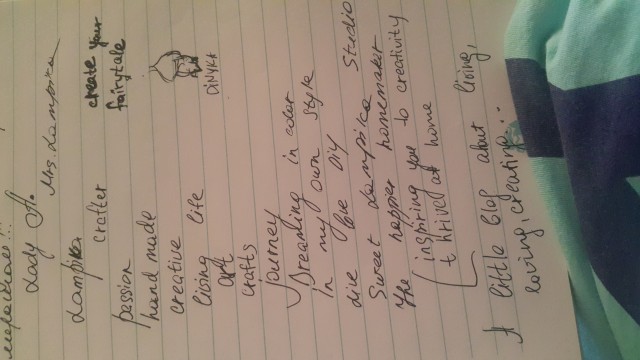 Lady A.
Mrs. Lampika
Lampika crafter
create your
fairytale
passion
hand made
creative life
living
art
crafts
journey
Dreaming in color
In my own style
live love DIY
Sweet Lampika Studio
The happier homemaker
inspiring you to creativity
thrive at home
A little blog about living,
loving, creating...